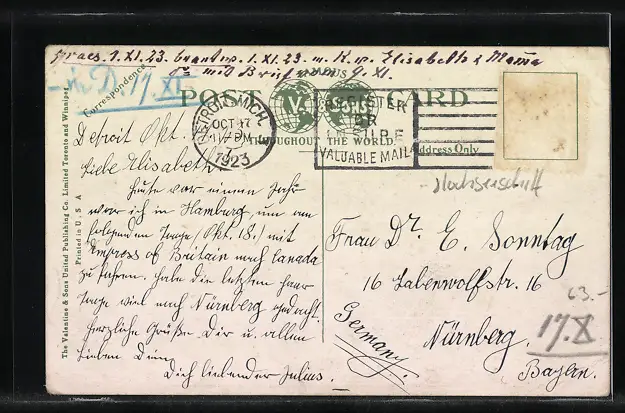 praes. 1.XI.23. beantw. 1.XI.23. m. K. v. Elisabeth & Mama
mit Brief 9.XI.
- in D. 17.XI.
Correspondence
FAMOUS
POST CARD
THROUGHOUT THE WORLD
Address Only
DETROIT, MICH.
OCT 17
1923
REGISTER
OR
INSURE
VALUABLE MAIL
Detroit Okt. 17.
Liebe Elisabeth
Heute vor einem Jahr
war ich in Hamburg, um am
folgenden Tage (Okt. 18.) mit
Empress of Britain nach Canada
zu fahren. Habe die letzten paar
Tage viel nach Nürnberg gedacht.
Herzliche Grüße Dir u. allen
lieben Dein
Dich liebender Julius.
The Valentine & Sons United Publishing Co. Limited Toronto and Winnipeg
Printed in U. S. A
Frau Dr. E. Sonntag
16 Labenwolfstr. 16
Nürnberg.
Bayern.
Germany.
63.-
17.X